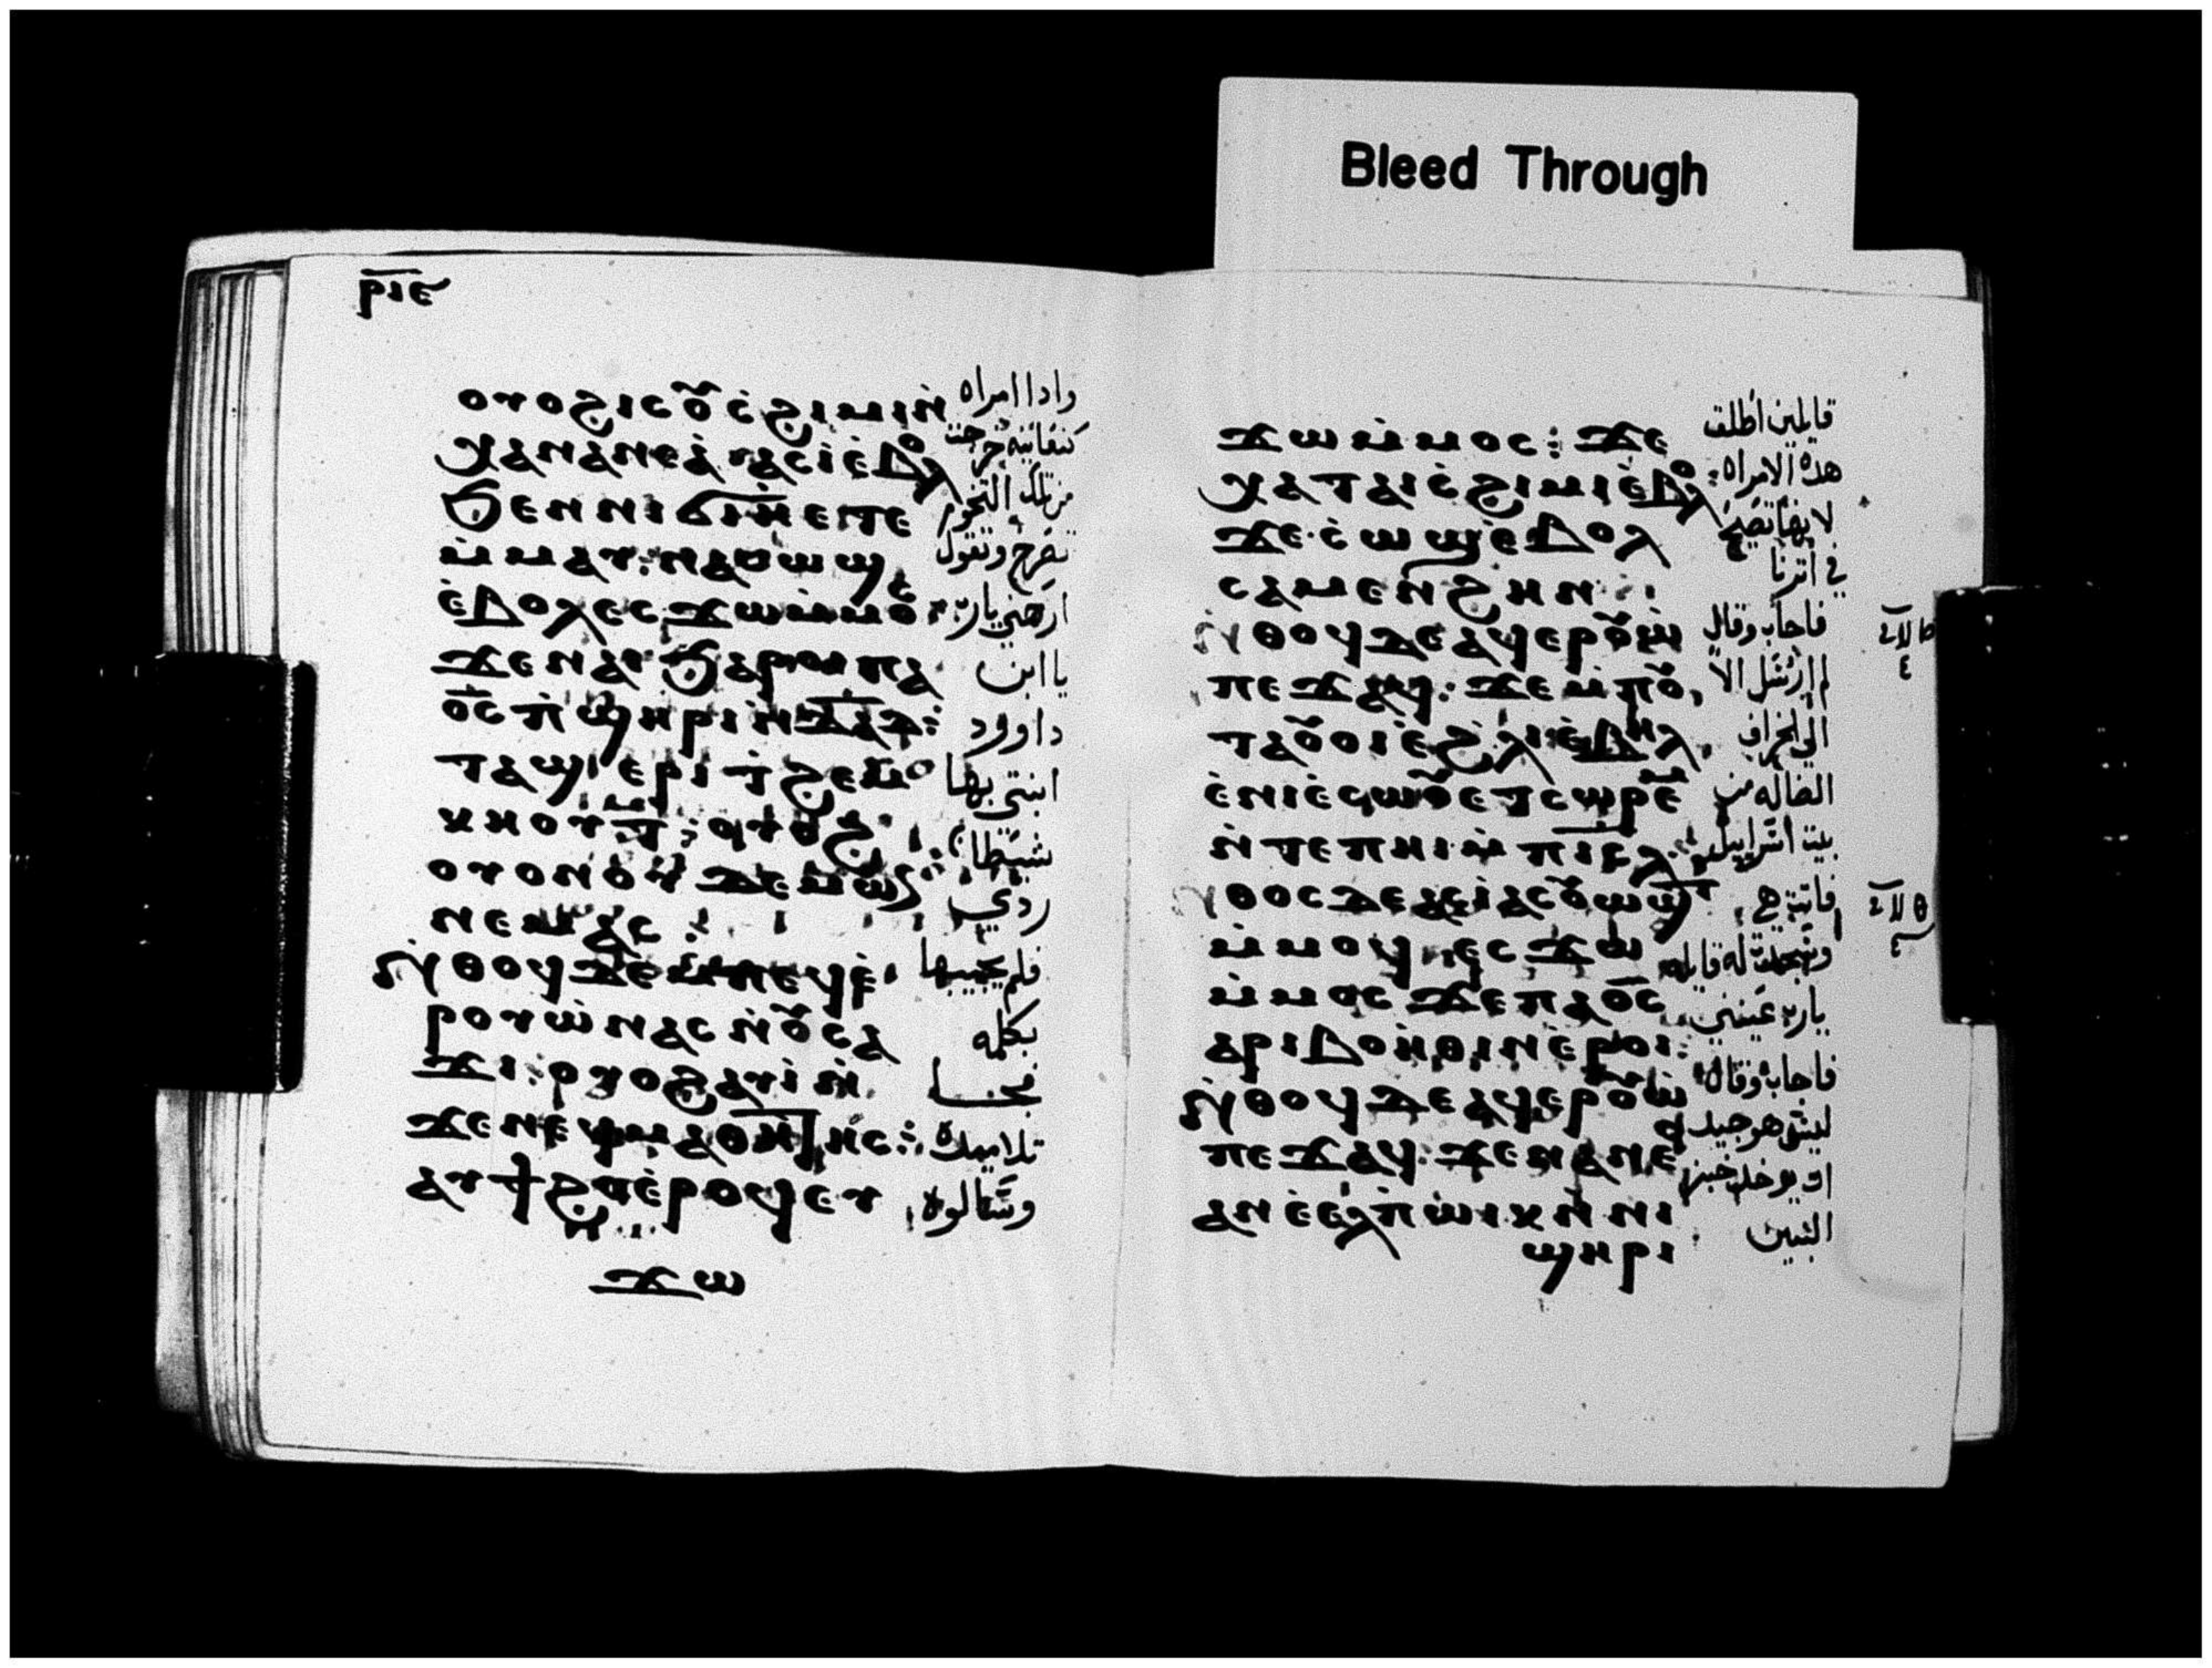 Bleed Through
ⲣⲓⲉ
ⲟⲩⲟϩ ⲓⲥ ⲟⲩ ⲥ̇ϩⲓⲙⲓ ⲛ̇
ⲭⲁⲛⲁⲛⲉⲁ ⲁⲥⲓ ⲉ̇ⲃⲟⲗ
ϧⲉⲛ ⲛⲓϭⲓⲏ ⲉⲧⲉ
ⲙ̇ⲙⲁⲩ: ⲛⲁⲥⲱϣ
ⲉ̇ⲃⲟⲗ ⲉⲥϫⲱ ⲙ̇ⲙⲟⲥ
ϫⲉ ⲛⲁⲓ ϧⲁⲣⲟⲓ ⲡⲁ
ⲟ̅ⲥ̅ ⲡ̇ϣⲏⲣⲓ ⲛ̇ⲇⲁⲇ:
ⲧⲁϣⲉⲣⲓ ϯϩⲉⲙⲟ
ⲕⲏⲟⲩⲧ: ⲟⲩⲟϩ
ⲟⲩⲟⲛ ⲟⲩ ⲇⲉⲙⲱⲛ
ⲛⲉⲙⲁⲥ:
ⲛ̇ⲑⲟϥ ⲇⲉ ⲙⲡⲉϥⲉ̇
ⲣⲟⲩⲱ̇ ⲛⲁⲥ ⲛ̇ⲟⲩⲥⲁ
ϫⲓ: ⲟⲩⲟϩ ⲁⲩⲓ̇ ⲛ̇
ϫⲉ ⲛⲉϥⲙⲁⲑⲏⲧⲏⲥ:
ⲁⲩϯϩⲟ ⲉ̇ⲣⲟϥ ⲉⲩ
ϫⲱ
وادا امراه
كنعانيه خرجت
من تلك التخوم
تصرخ وتقول
ارحمني يارب
يا ابن
داوود
ابنتي بها
شيطان
ردي
فلم يجيبها
بكلمه
فجا
تلاميده
وسالوه
ϫⲱ ⲙ̇ⲙⲟⲥ: ϫⲉ
ⲭⲁ ⲧⲁⲓ ⲥ̇ϩⲓⲙⲓ ⲉ̇ⲃⲟⲗ
ϫⲉ ⲥ̇ⲱϣ ⲉ̇ⲃⲟⲗ
ⲥⲁⲙⲉⲛϩⲏⲛ
ⲛ̇ⲑⲟϥ ⲇⲉ ⲁϥⲉⲣⲟⲩⲱ̇
ⲡⲉϫⲁϥ: ϫⲉ ⲙ̇ⲡⲟⲩ
ⲧⲁⲟⲩⲟⲓ ⲉ̇ϩⲗⲓ ⲉ̇ⲃⲏⲗ
ⲉ̇ⲛⲓⲉ̇ⲥⲱⲟⲩ ⲉⲧⲥⲱⲣⲉⲙ
ⲛ̇ⲧⲉ ⲡⲏⲓ ⲙ̇ⲡⲓⲥⲗ
ⲛ̇ⲑⲟⲥ ⲇⲉ ⲁⲥⲓ̇ ⲁⲥⲟⲩⲱϣⲧ
ⲙ̇ⲙⲟϥ ⲉⲥϫⲱ
ⲙ̇ⲙⲟⲥ ϫⲉ ⲡⲁⲟ̅ⲥ̅
ⲁⲣⲓⲃⲟⲏ̇ⲑⲓⲛ ⲉ̇ⲣⲟⲓ:
ⲛ̇ⲑⲟϥ ⲇⲉ ⲁϥⲉⲣⲟⲩⲱ̇
ⲡⲉϫⲁϥ: ϫⲉ ⲛⲁⲛⲉ
ⲁⲛ ⲉ̇ⲉ̇ⲗ ⲡ̇ⲱⲓⲕ ⲛ̇ⲛⲓ
ϣⲏⲣⲓ
قايلين اطلق
هذه الامراه
لانها تصيح
في اترنا
فاجاب وقال
لم ارسل الا
الى الخراف
الضاله من
بيت اسراييل
فاتت هي
وسجدت له قايله
يارب عينني
فاجاب وقال
ليس هو جيد
ان يوخد خبز
البنين